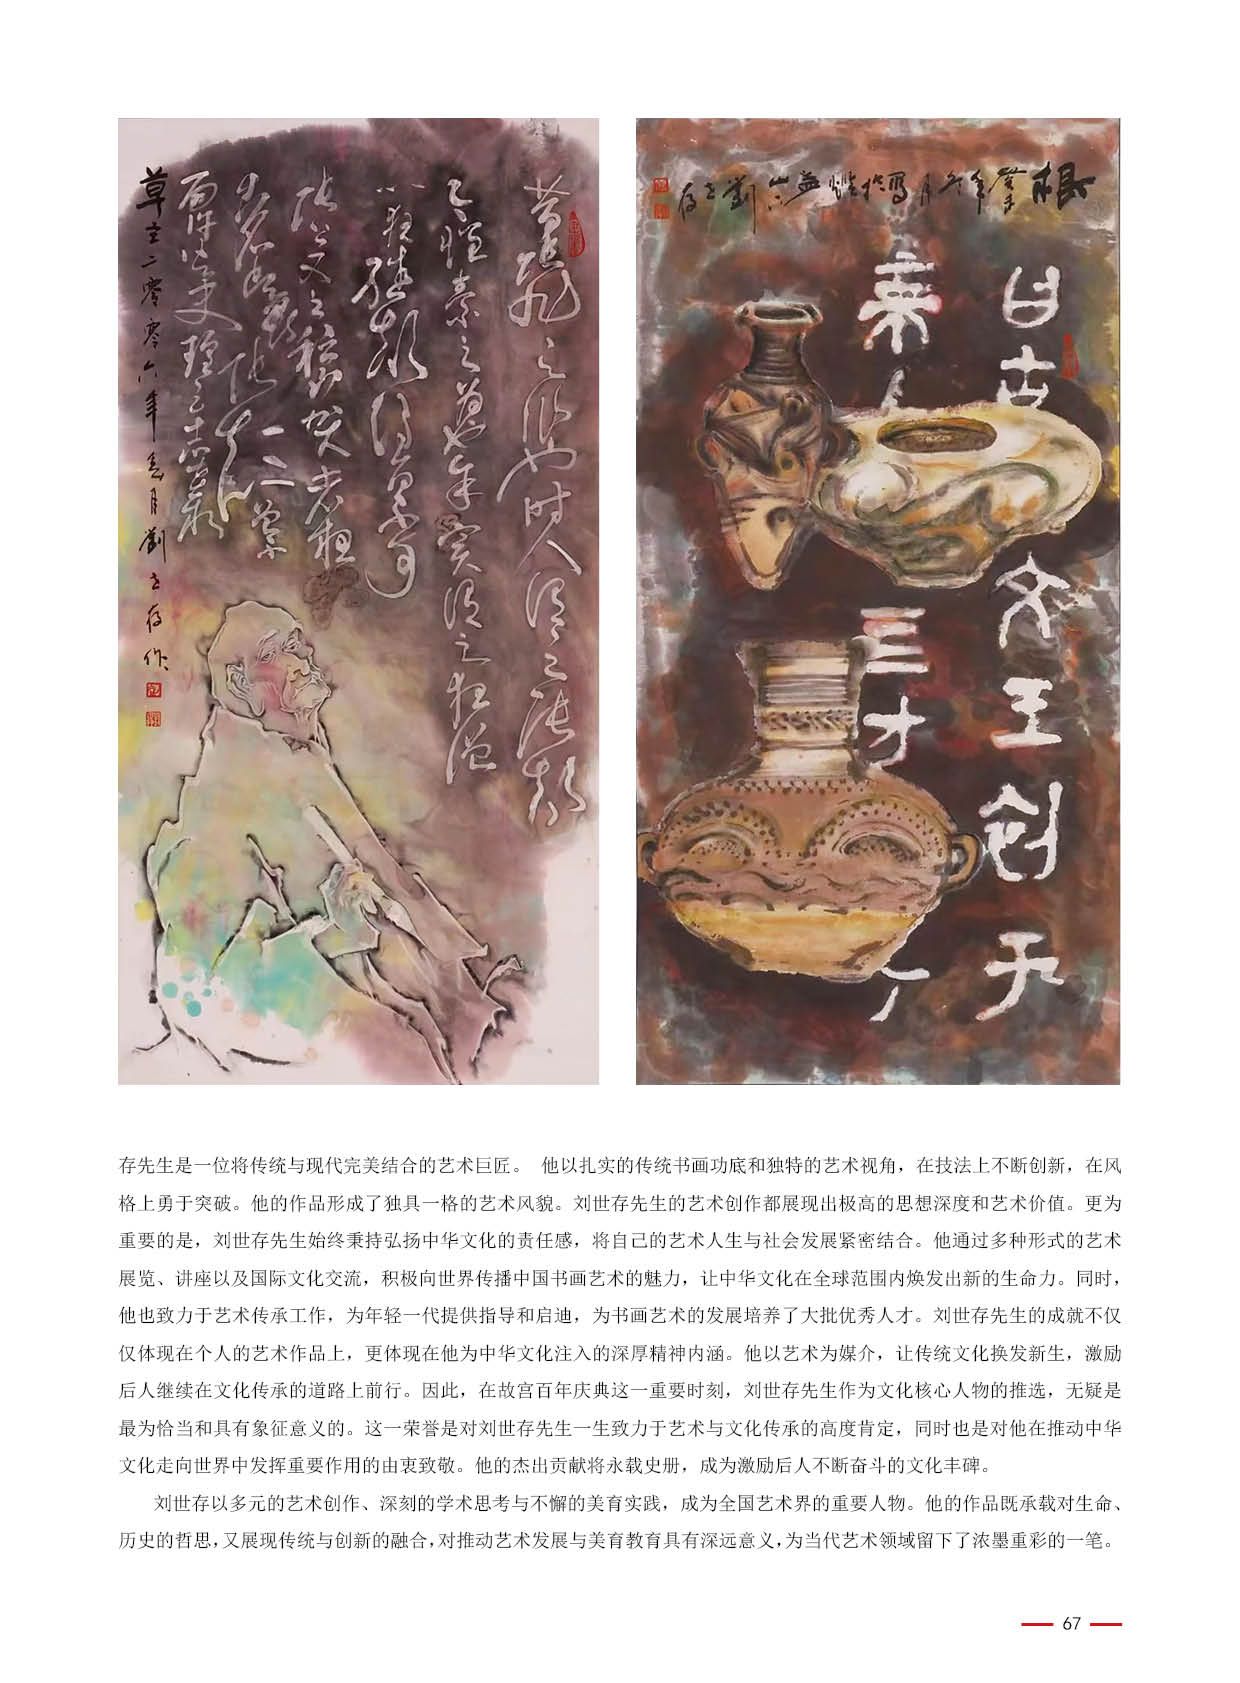 草主二零零六年春月劉世存作
根
劉世存
自古文王創天
三才
存先生是一位将传统与现代完美结合的艺术巨匠。 他以扎实的传统书画功底和独特的艺术视角，在技法上不断创新，在风
格上勇于突破。他的作品形成了独具一格的艺术风貌。刘世存先生的艺术创作都展现出极高的思想深度和艺术价值。更为
重要的是，刘世存先生始终秉持弘扬中华文化的责任感，将自己的艺术人生与社会发展紧密结合。他通过多种形式的艺术
展览、讲座以及国际文化交流，积极向世界传播中国书画艺术的魅力，让中华文化在全球范围内焕发出新的生命力。同时，
他也致力于艺术传承工作，为年轻一代提供指导和启迪，为书画艺术的发展培养了大批优秀人才。刘世存先生的成就不仅
仅体现在个人的艺术作品上，更体现在他为中华文化注入的深厚精神内涵。他以艺术为媒介，让传统文化换发新生，激励
后人继续在文化传承的道路上前行。因此，在故宫百年庆典这一重要时刻，刘世存先生作为文化核心人物的推选，无疑是
最为恰当和具有象征意义的。这一荣誉是对刘世存先生一生致力于艺术与文化传承的高度肯定，同时也是对他在推动中华
文化走向世界中发挥重要作用的由衷致敬。他的杰出贡献将永载史册，成为激励后人不断奋斗的文化丰碑。
刘世存以多元的艺术创作、深刻的学术思考与不懈的美育实践，成为全国艺术界的重要人物。他的作品既承载对生命、
历史的哲思，又展现传统与创新的融合，对推动艺术发展与美育教育具有深远意义，为当代艺术领域留下了浓墨重彩的一笔。
67